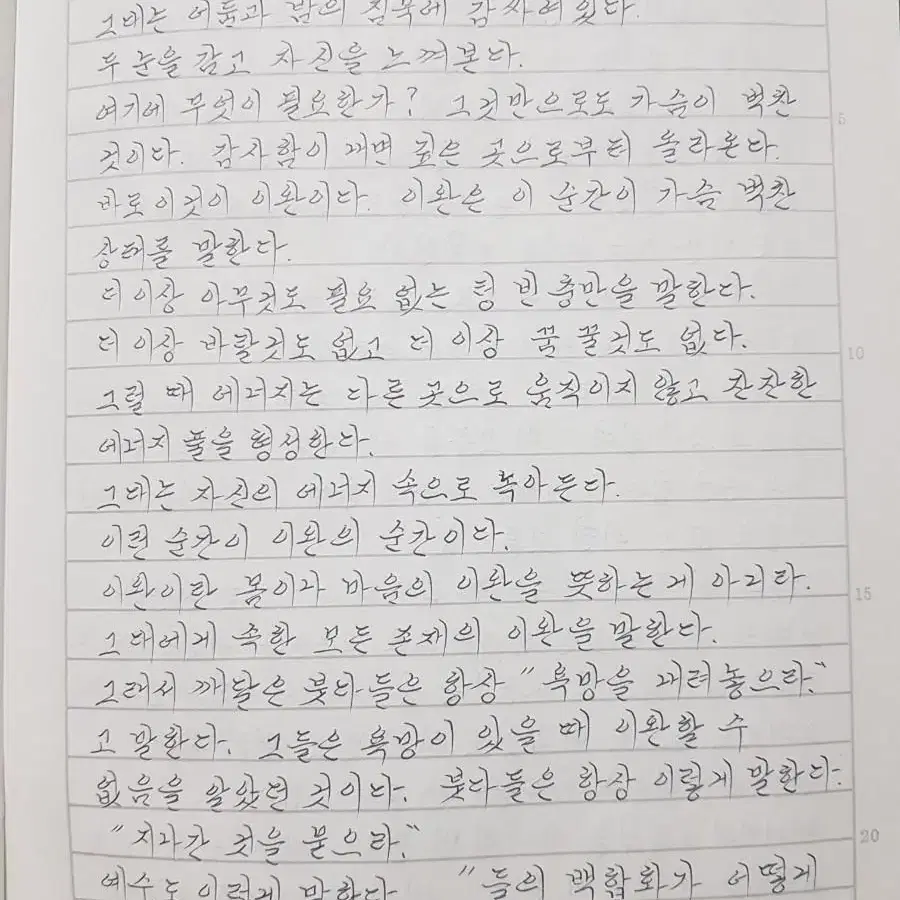 그대는 어둠과 밤의 침묵에 감싸여있다.
두 눈을 감고 자신을 느껴본다.
여기에 무엇이 필요한가? 그것만으로도 가슴이 벅찬
것이다. 감사함이 내면 깊은 곳으로부터 올라온다.
바로이것이 이완이다. 이완은 이 순간이 가슴 벅찬
상태를 말한다.
더이상 아무것도 필요 없는 텅 빈 충만을 말한다.
더이상 바랄것도 없고 더 이상 꿈 꿀것도 없다.
그럴 때 에너지는 다른 곳으로 움직이지 않고 잔잔한
에너지 풀을 형성한다.
그대는 자신의 에너지 속으로 녹아든다.
이런 순간이 이완의 순간이다.
이완이란 몸이나 마음의 이완을 뜻하는게 아니라.
그대에게 속한 모든 존재의 이완을 말한다.
그래서 깨달은 붓다들은 항상 "욕망을 내려놓으라."
고 말한다. 그들은 욕망이 있을 때 이완할 수
없음을 알았던 것이다. 붓다들은 항상 이렇게 말한다.
"지나간 것을 묻으라."
예수도 이렇게 말한다 "들의 백합화가 어떻게
5
10
15
20